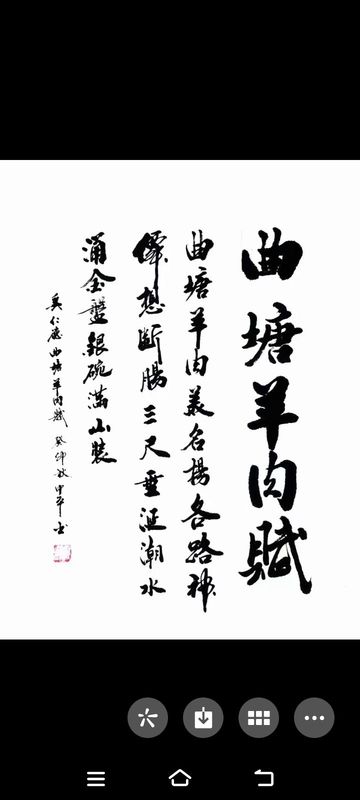 曲塘羊肉赋
曲塘羊肉美名揚各路神
僊想斷腸三尺垂涎潮水
涌金盤銀碗滿山裝
吴仁德曲塘羊肉赋 癸 敏中平书